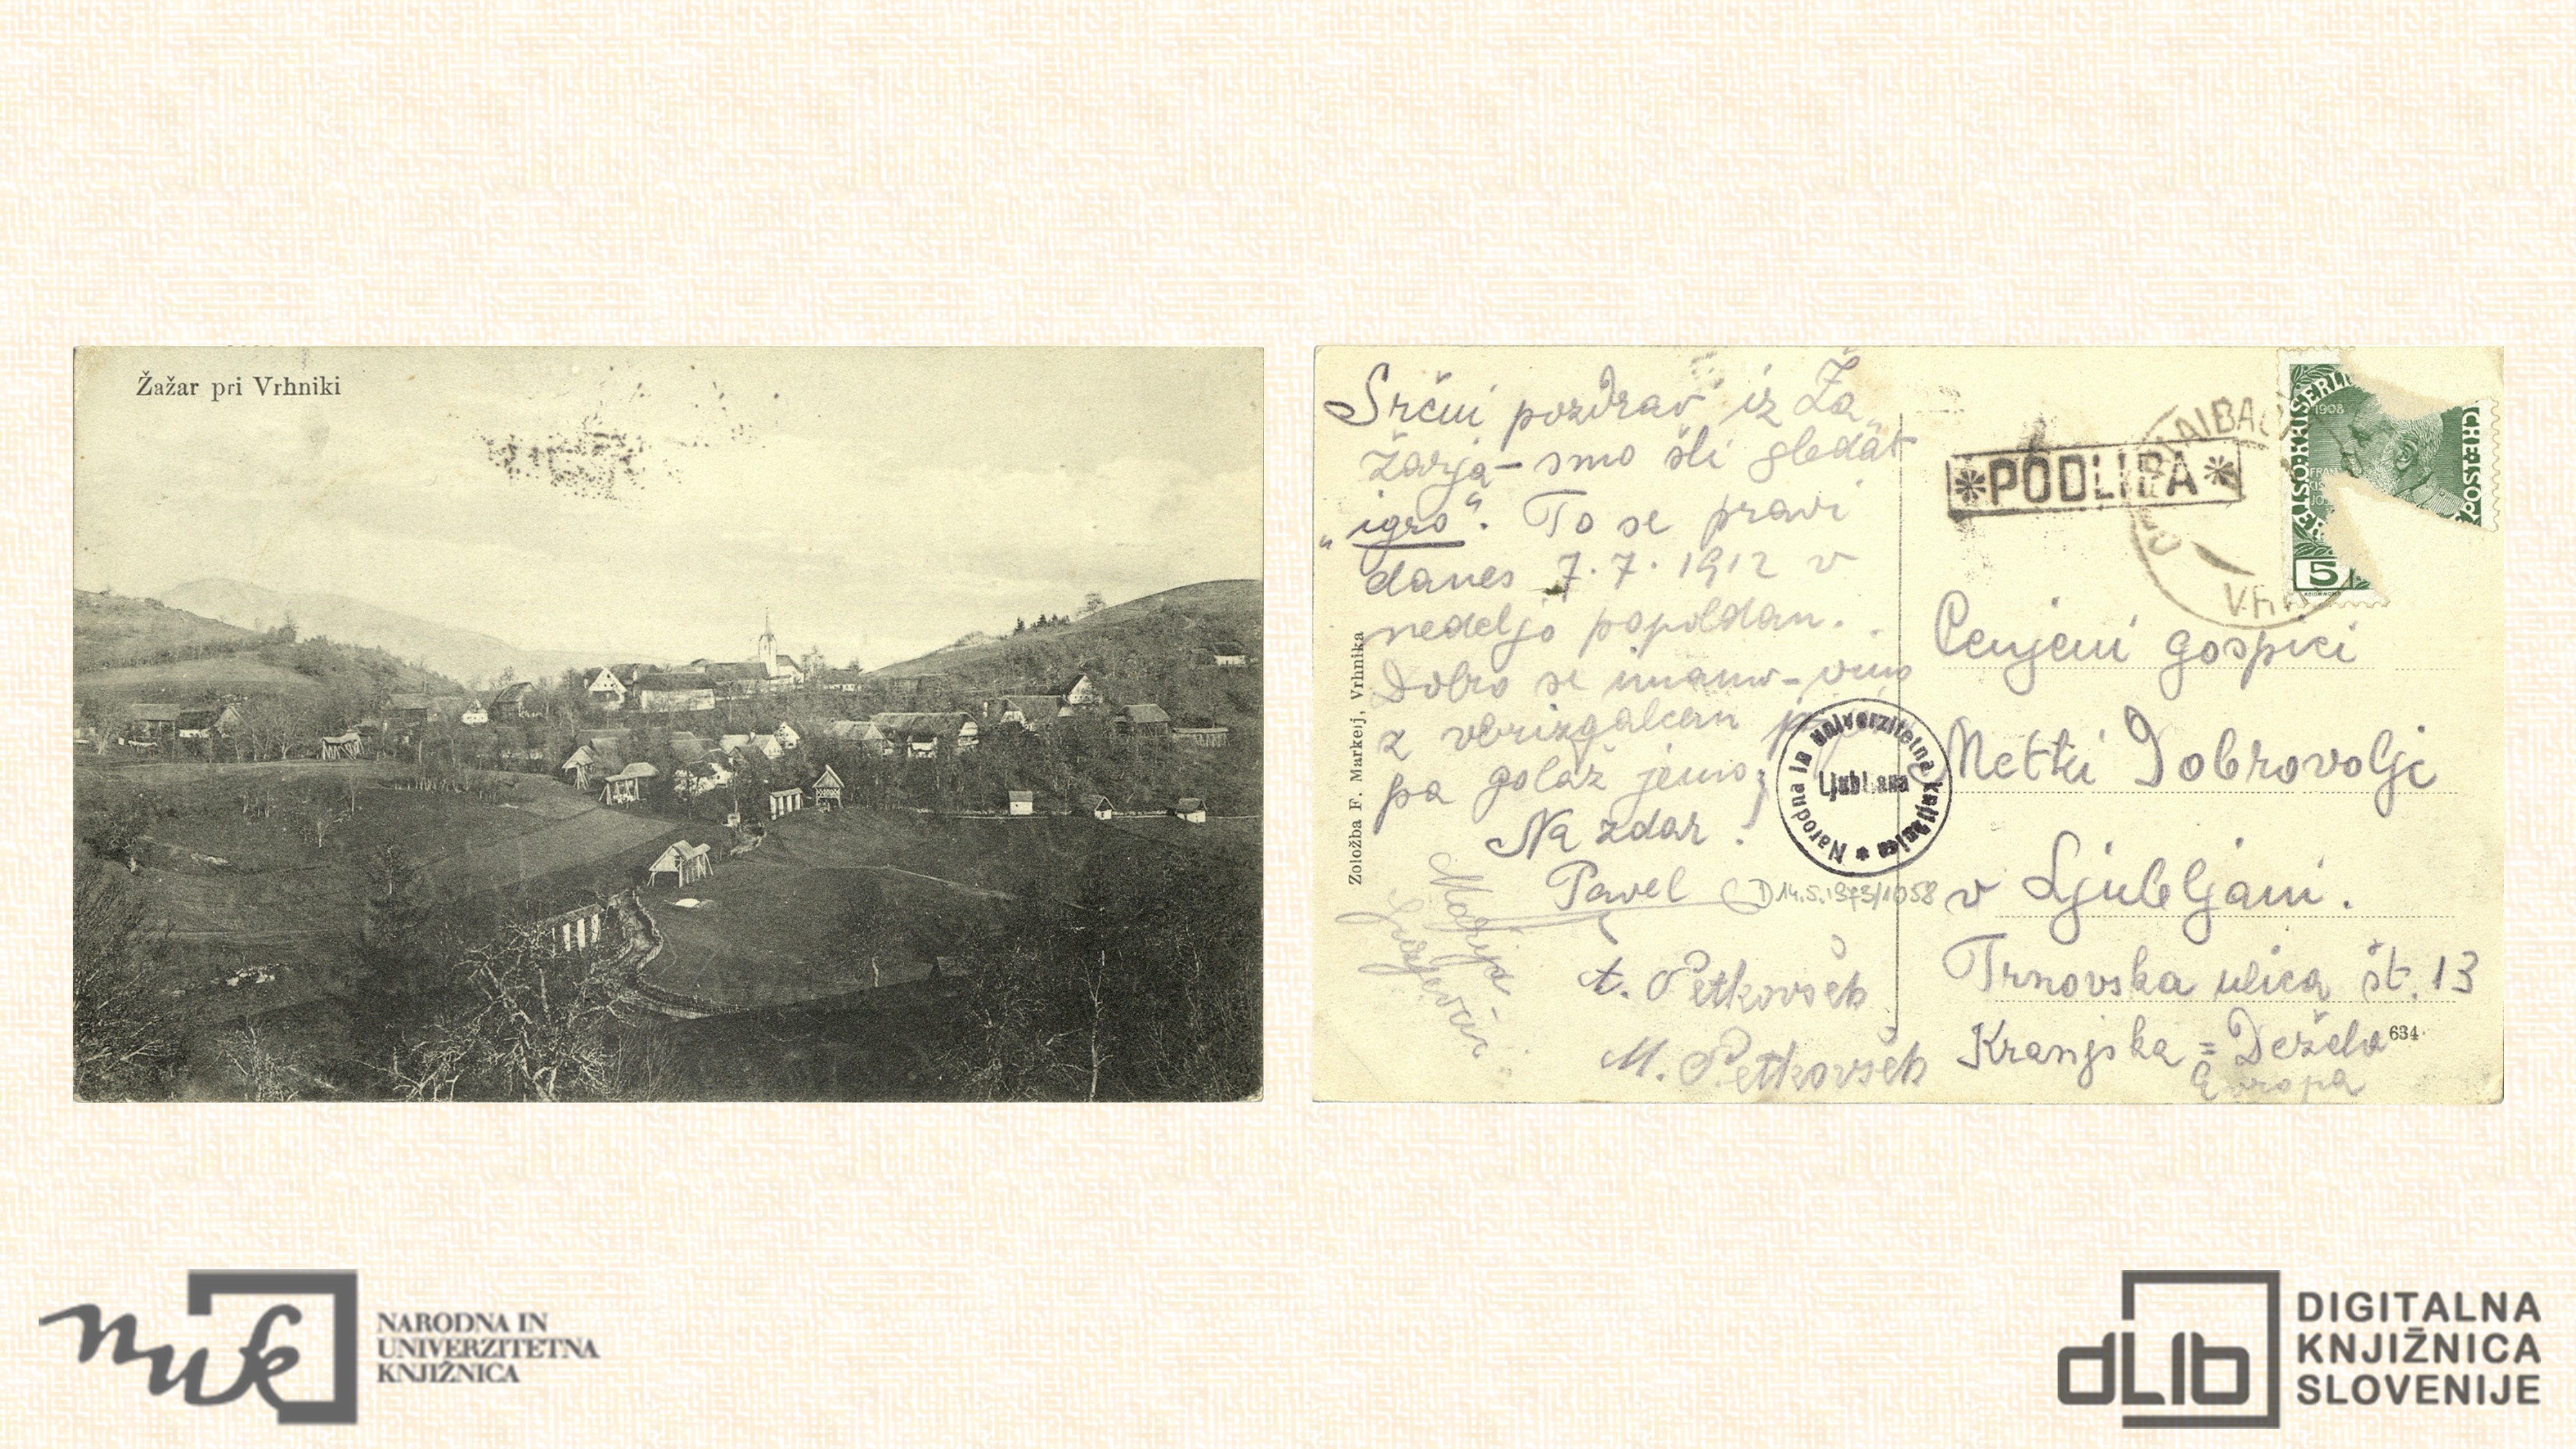 Žažar pri Vrhniki
Srčni pozdrav iz Ža„
žarja – smo šli gledat
„igro“. To se pravi
danes 7. 7. 1912 v
nedeljo popoldan.
Dobro se imamo – vino
z
pa golaž jemo;
Na zdar!
Pavel
A. Petkovšek
M. Petkovšek
Marija
D 14.5.1973/1058
Založba F. Markelj, Vrhnika
Narodna in univerzitetna knjižnica *
Ljubljana
*PODLIPA*
LAIBACH
1908
5
Cenjeni gospici
Metki Dobrovoljc
v Ljubljani.
Trnovska ulica št. 13
Kranjska = Dežela
634
Evropa
nuk
NARODNA IN
UNIVERZITETNA
KNJIŽNICA
dLib
DIGITALNA
KNJIŽNICA
SLOVENIJE